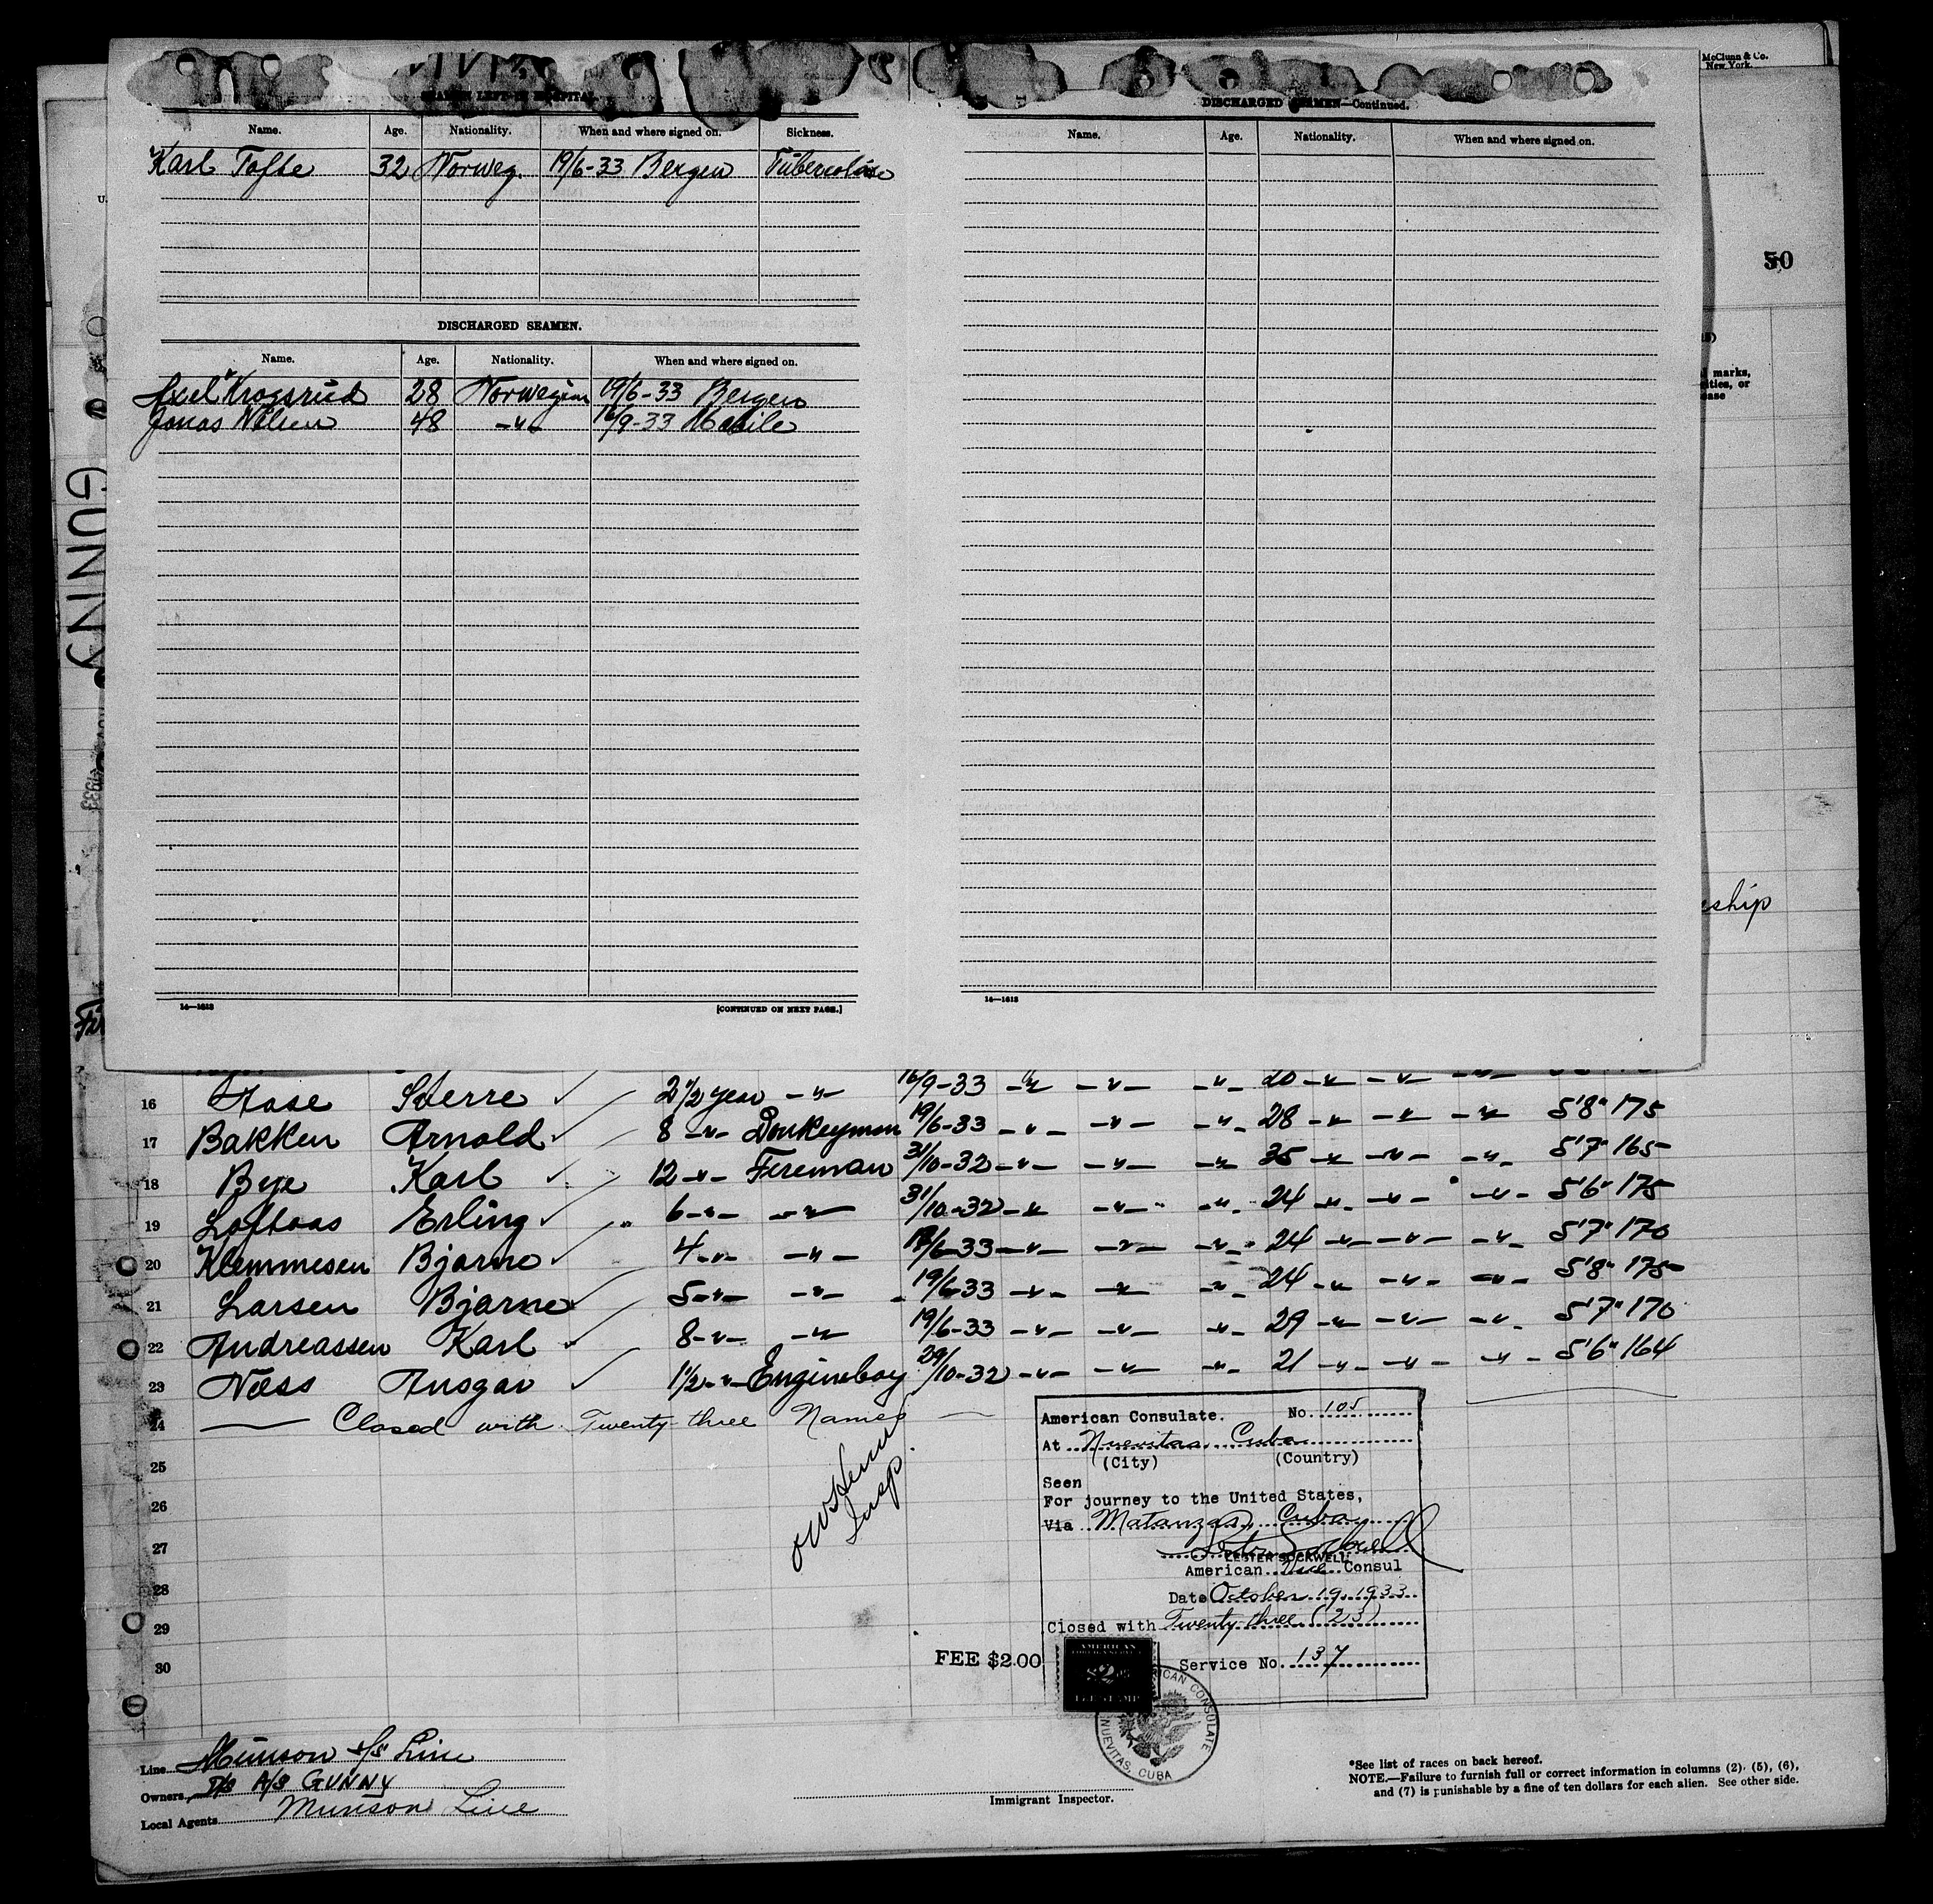 McClunn & Co.
New York.
SEAMEN LEFT IN HOSPITAL
Name. Age. Nationality. When and where signed on. Sickness.
Karl Tofte 32 Norweg. 19/6-33 Bergen
DISCHARGED SEAMEN.
Name. Age. Nationality. When and where signed on.
Axel Krogsrud 28 Norwegian 19/6-33 Bergen
Jonas Nilsen 48 -"- 16/9-33 Mobile
14—1613 [CONTINUED ON NEXT PAGE.]
DISCHARGED SEAMEN—Continued.
Name. Age. Nationality. When and where signed on.
14—1613
50
marks,
ities, or
ease
GUNNY
1933
eship
16 Aase Sverre 2 1/2 year -"- 16/9-33 -"- -"- -"- 20 -"- -"- -"-
17 Bakken Arnold 8 -"- Donkeyman 19/6-33 -"- -"- -"- 28 -"- -"- -"- 5'8" 175
18 Bye Karl 12 -"- Fireman 31/10-32 -"- -"- -"- 35 -"- -"- -"- 5'7" 165
19 Loftaas Erling 6 -"- -"- 31/10-32 -"- -"- -"- 24 -"- -"- -"- 5'6" 175
20 Klemmesen Bjarne 4 -"- -"- 19/6-33 -"- -"- -"- 24 -"- -"- -"- 5'7" 170
21 Larsen Bjarne 5 -"- -"- 19/6-33 -"- -"- -"- 24 -"- -"- -"- 5'8" 175
22 Andreassen Karl 8 -"- -"- 19/6-33 -"- -"- -"- 29 -"- -"- -"- 5'7" 170
23 Næss Ansgar 1 1/2 -"- Engineboy 29/10-32 -"- -"- -"- 21 -"- -"- -"- 5'6" 164
24 Closed with Twenty three Names
25
26
27
28
29
30
Insp.
American Consulate. No. 105
At Nuevitas Cuba
(City) (Country)
Seen
For journey to the United States,
Via Matanzas, Cuba
LESTER SOCKWELL
American Vice Consul
Date October 19, 1933
Closed with Twenty-three (23)
FEE $2.00 Service No. 137
AMERICAN
$2
FEE STAMP
AMERICAN CONSULATE
NUEVITAS, CUBA
Line Munson S/S Line
Owners D/S A/S GUNNY
Local Agents Munson Line
Immigrant Inspector.
*See list of races on back hereof.
NOTE.—Failure to furnish full or correct information in columns (2), (5), (6),
and (7) is punishable by a fine of ten dollars for each alien. See other side.